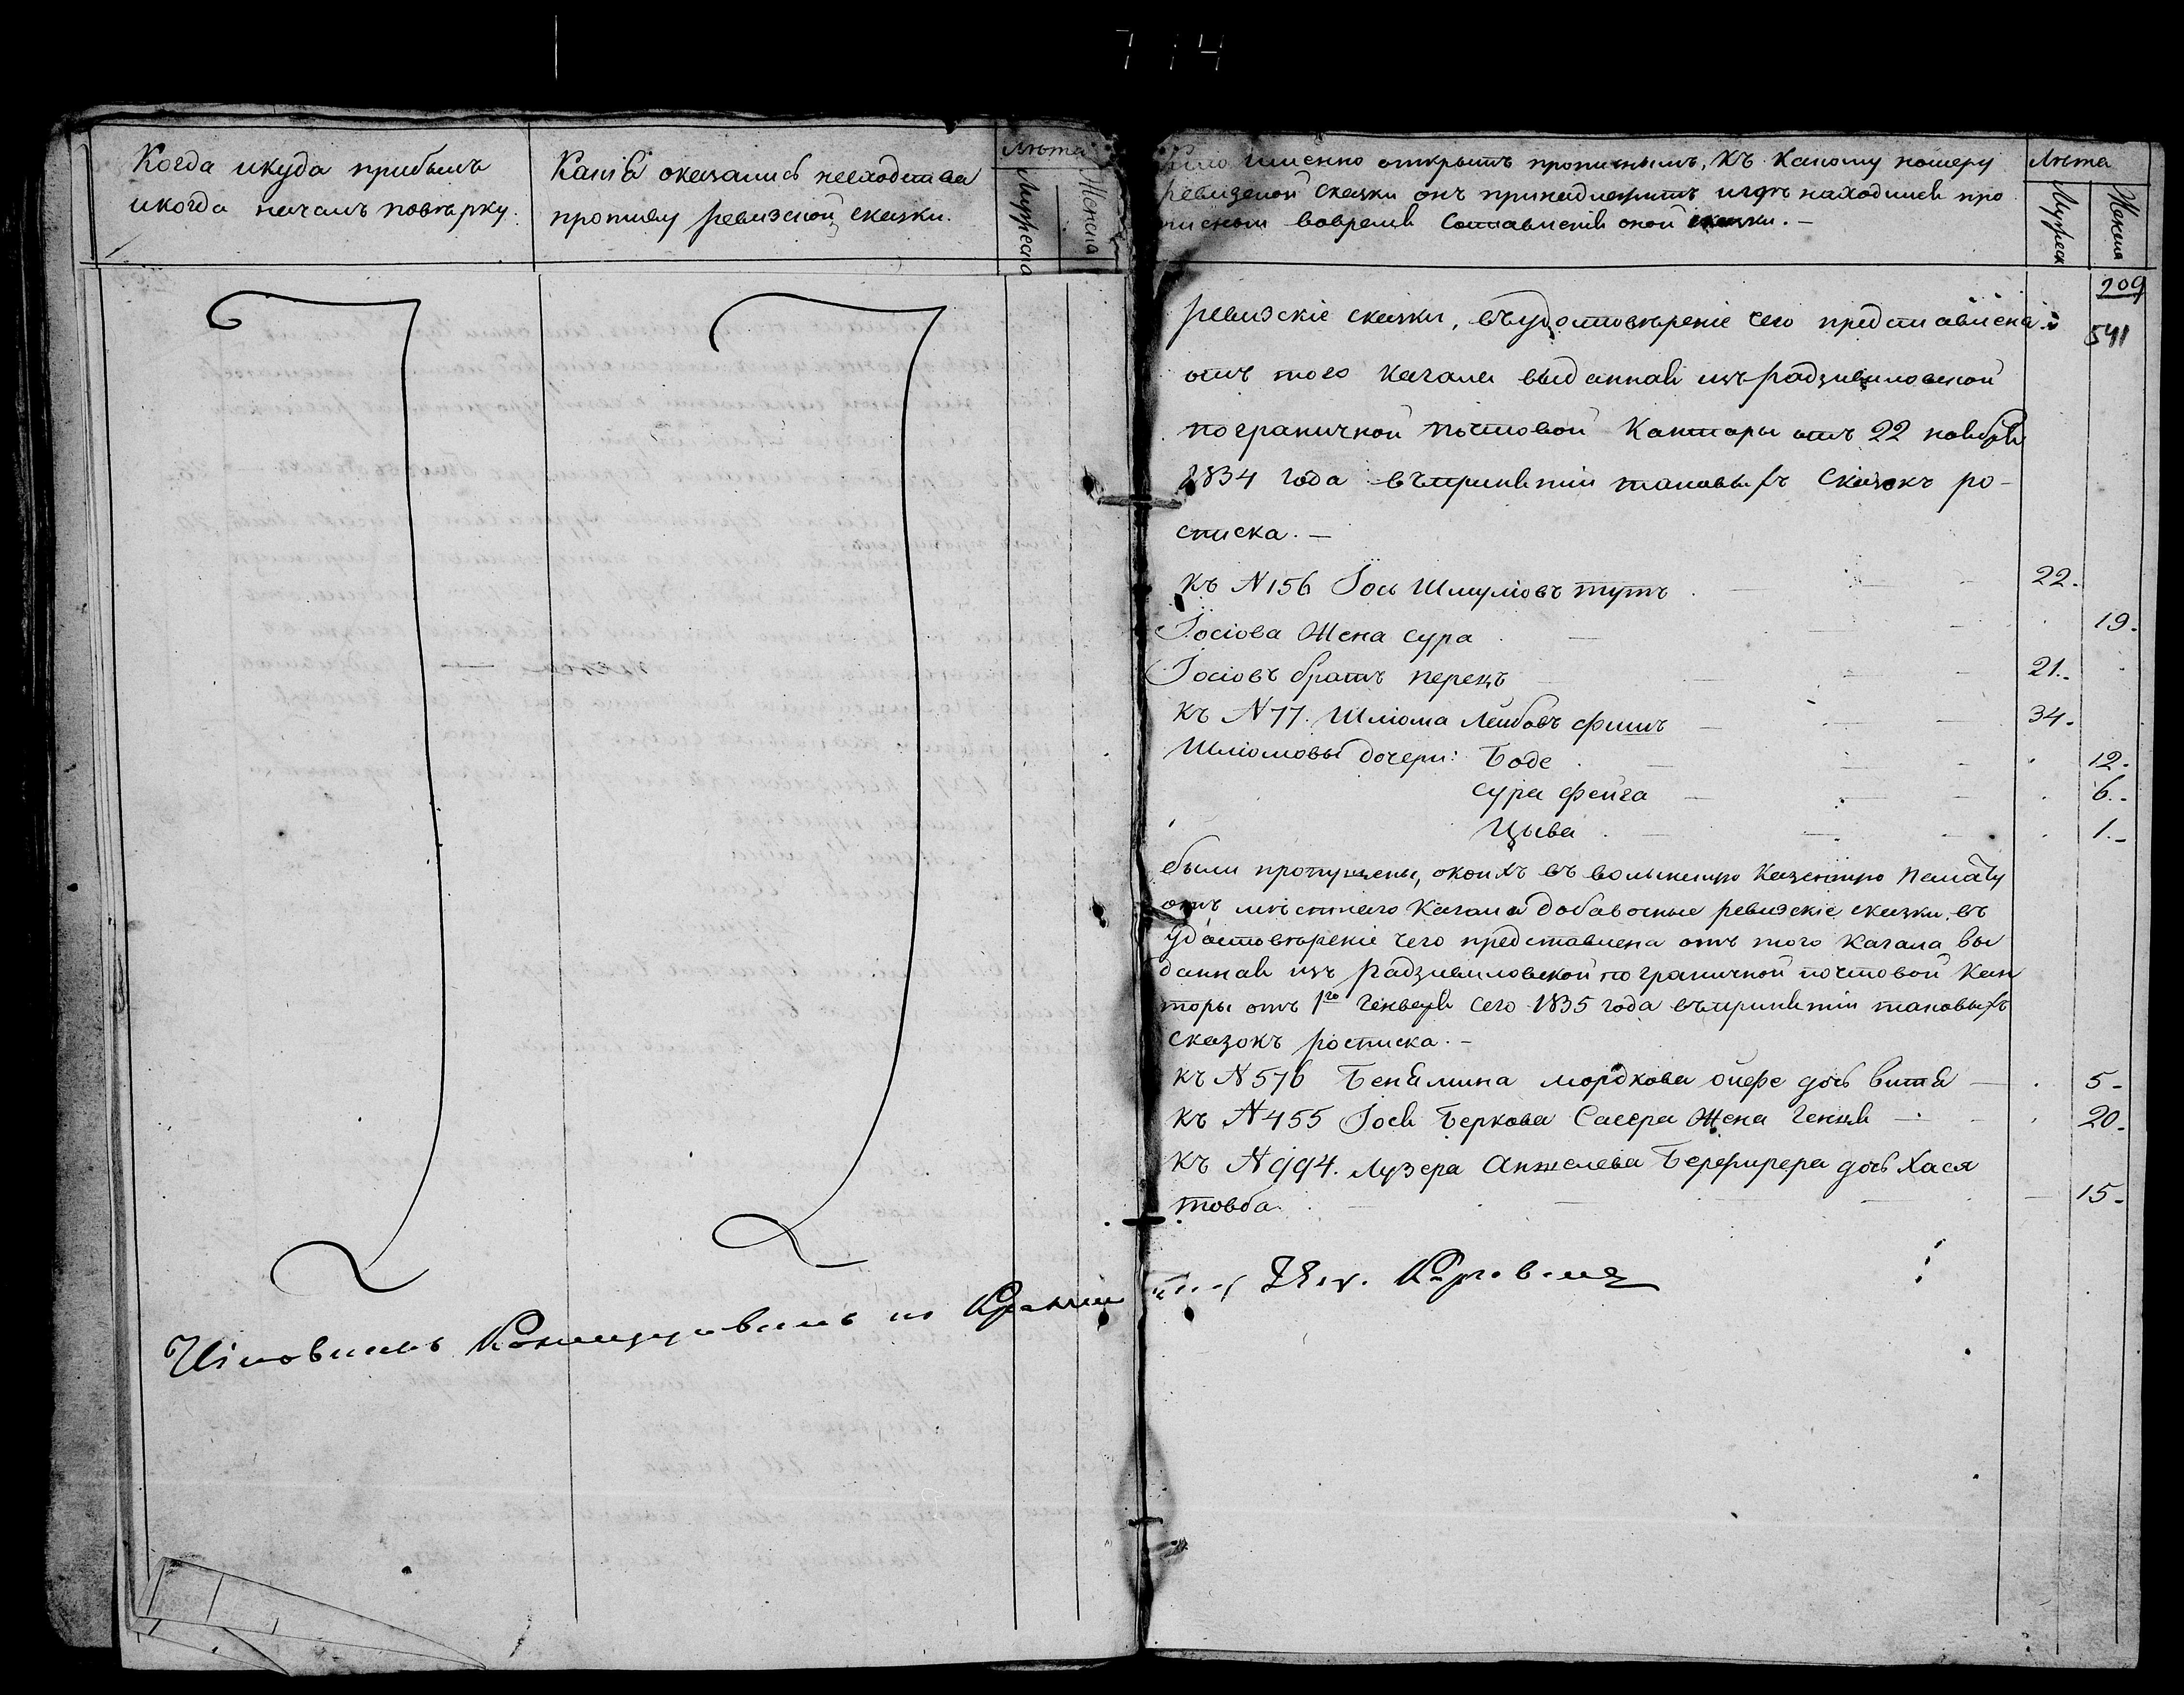 7 14
Когда икуда прибылъ
икогда началъ повѣрку.
Какія оказались несходства
противу ревизской сказки.
Лѣта
Мужеска
Женска
именно открытъ прописнымъ, къ какому номеру
ревизской сказки онъ принадлежитъ игдѣ находился про
писной вовремя составленія оной сказки. —
Лѣта
Мужеск
Женска
209
541
ревизскіе сказки, въудостовѣреніе чего представлена
отъ того кагала выданная изъ радзивиловской
пограничной почтовой Канторы отъ 22 ноября
1834 года въпринятіи таковыхъ сказокъ ро-
списка. —
къ N 156 Іось Шмуліовъ тутъ 22.
Іосіова Жена сура 19.
Іосіовъ братъ перецъ 21.
къ N 77. Шліома Лейбовъ фишъ 34.
Шліомовы дочери: Боде 12.
сура фейга 6.
Цыва 1.
были пропущены, окоихъ въ волынскую Казенную палату
отъ мѣстнаго кагала добавочные ревизскіе сказки, въ
удостовѣреніе чего представлена отъ того кагала вы
данная изъ радзивиловской пограничной почтовой Кан
торы отъ 1го Генваря сего 1835 года въпринятіи таковыхъ
сказокъ росписка. —
къ N 576 Беніамина мордкова дочь витя 5
къ N 455 Іося Беркова Жена Генця 20.
къ N 994. Лузера Анжелева дочь Хася
товба. 15.